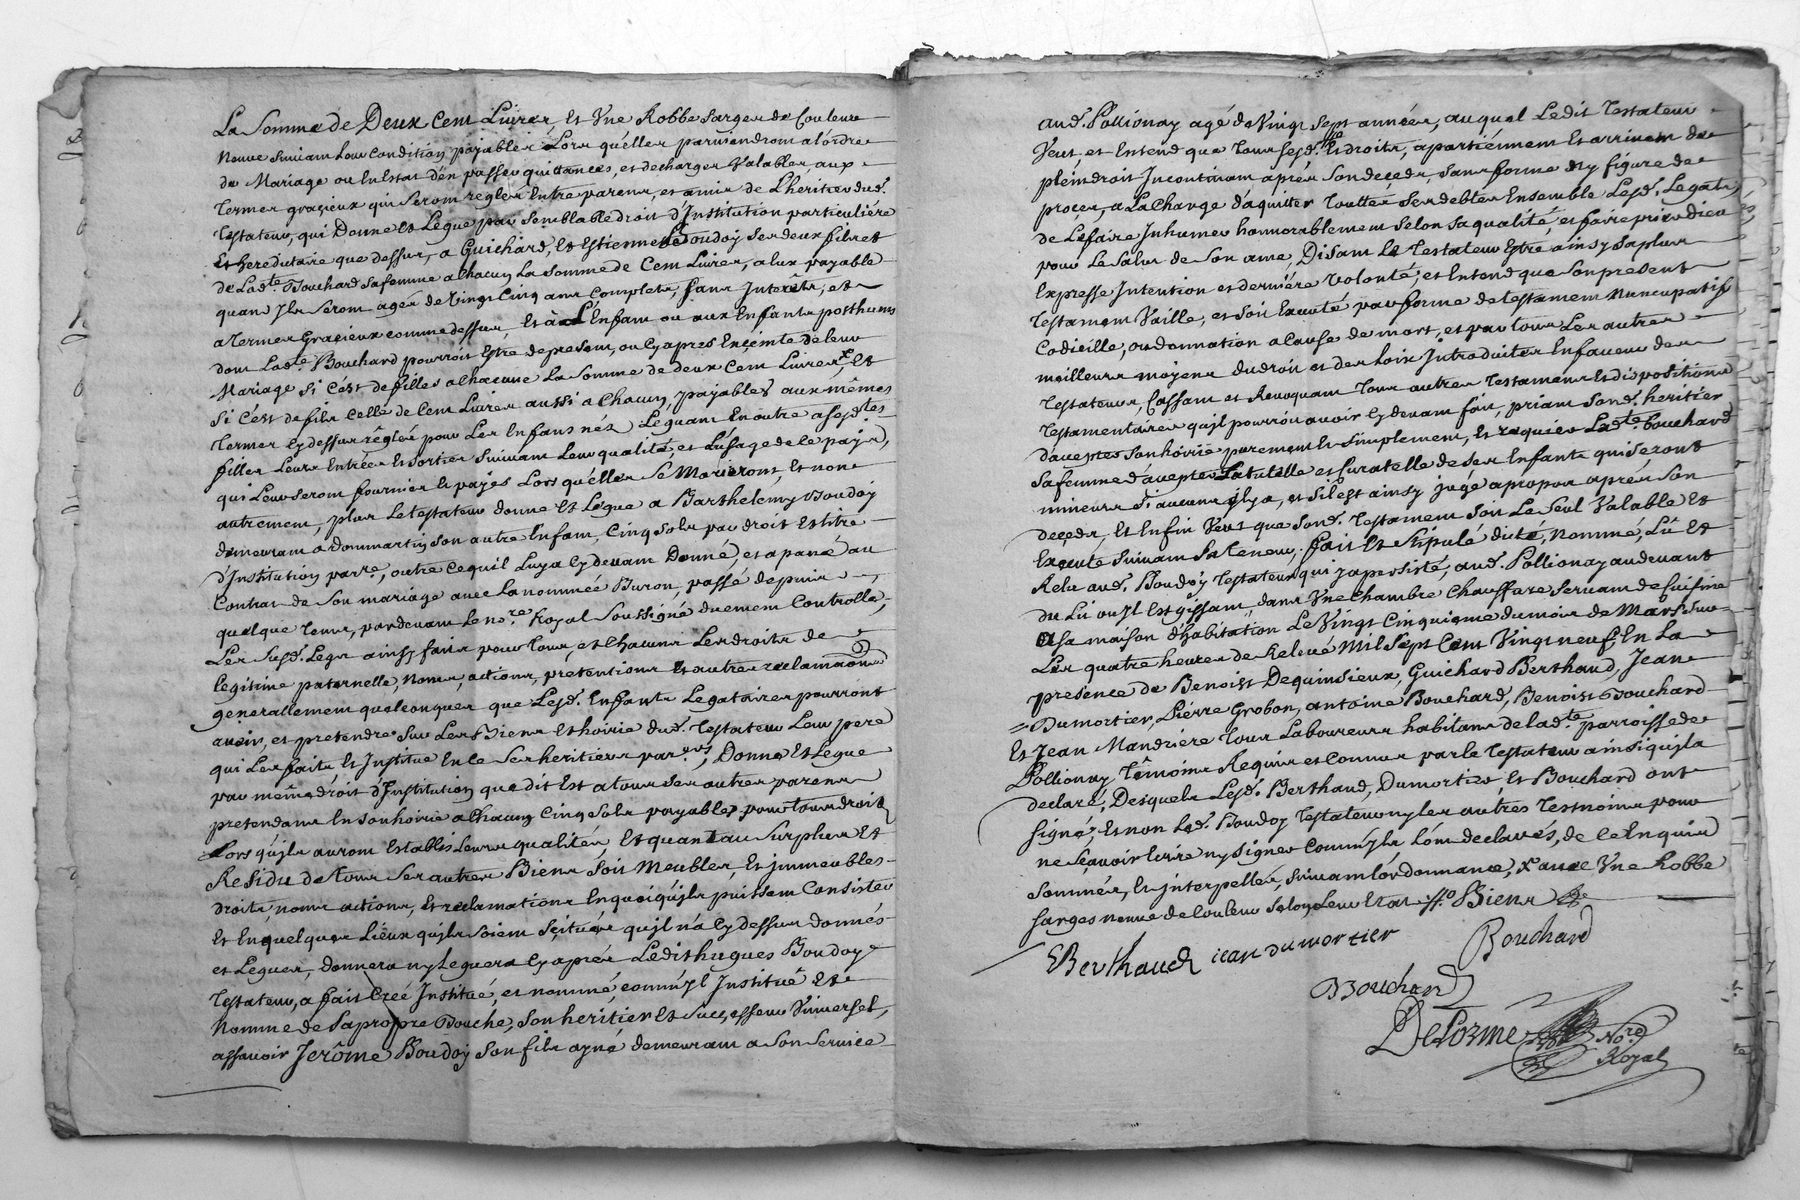 La Somme de Deux Cent Livres, Et Une Robbe Sarges de Couleur
Neuve Suivant Leur Condition payables Lors qu'elles parviendront a l'ordre
de Mariage ou En Estat d'en passer quittances, et decharges Valables, aux
Termes gracieux qui Seront regles Entre parens, et amis de L'heritier dud.
Testateur, qui Donne et Legue par Semblable droit d'Institution particuliere
Et hereditaire que dessus, a Guichard, Et Estienne Boudoy Ses deux fils et
de Lad.te Bouchard Sa femme a Chacun La Somme de Cent Livres, a Eux payable
quand Ils Seront ages de Vingt Cinq ans Complets, Sans Interêts, et
a Termes Gracieux comme dessus Et à L'Enfant ou aux Enfants posthumes
dont Lad.te Bouchard pourroit Estre de present, ou Cy apres Enceinte de Leur
Mariage Si C'est de filles a Chacune La Somme de deux Cent Livres, x Et
Si C'est de fils Celle de Cent Livres aussi a Chacun, payables aux mêmes
Termes Cy dessus réglés pour Les Enfans nés, Leguant En outre a Sesd.tes
filles Leurs Entrées Et Sorties Suivant Leur qualité, et L'usage de le païs,
qui Leur Seront fournies Et payés Lors qu'elles Se Marieront, Et non
autrement, plus Le testateur donne Et Legue a Barthelemy Boudoy
demeurant a dommartin Son autre Enfant, Cinq Sols par droit Et titre
d'Institution par.re, outre Ce quil Luy a Cy devant Donné, et a pané au
Contrat de Son mariage avec La nommée Buron, passé depuis
quelque tems, pardevant Le no.re Royal Soussigné duement Controllé,
Les Susd. Legs ainsy faits pour tous, et Chacuns Les droits de
legitime paternelle, noms, actions, pretentions Et autres reclamaons
generallement quelconques que Lesd. Enfants Legataires pourront
avoir, et pretendre Sur Les Biens Et hoirie dud. Testateur Leur pere
qui Les faits Et Institue En Ce Ses heritiers par.ers, Donne Et Legue
par même droit d'Institution que dit Est a tous Ses autres parens
pretendans En Son hoirie a Chacun Cinq Sols payables pour tous droits
Lors qu'ils auront Establis Leurs qualités, Et quant au Surplus Et
Residu de tous Ses autres Biens Soit Meubles, Et immeubles
droits, noms actions, Et reclamations En quoi qu'ils puissent Consister
Et En quelques Lieux qu'ils Soient Scitués qu'il n'a Cy dessus donnés
et Legues, donnera ny Leguera Cy après Ledit hugues Boudoy
Testateur, a fait Creé Institué, et nommé comm'Il Institue Et
Nomme de Sa propre Bouche, Son heritier Et Successeur Universel,
assavoir Jerôme Boudoy Son fils ayné demeurant a Son Service
aud. Pollionay agé de Vingt Sept années, auquel Ledit Testateur
Veut, et Entend que tous Sesd. Et droits, apartiennent Et arrivent de
plein droit Incontinant après Son deceds, Sans forme ny figure de
proces, a La Charge d'aquitter Touttes Ses debtes Ensemble Lesd. Legats,
de Le faire Inhumer honnorablement Selon Sa qualité, et faire prier dieu
pour Le Salut de Son ame, Disant Le Testateur Estre ainsy Sa plus
Expresse Intention et dernière Volonté, et Entend que Son present
Testament Vaille, et Soit Executé par forme de testament Nuncupatif
Codicille, ou donnation a Cause de mort, et par tous Les autres
meilleurs moyens du droit et des Loix Introduites En faveur des
Testateurs, Cassant et Revoquant Tous autres Testamens Et dispositions
Testamentaires qu'il pourroit avoir Cy devant fait, priant Sond. heritier
d'accepter Son hoirie purement Et Simplement, Et requier Lad.te bouchard
Sa femme d'accepter La tutelle et Curatelle de Ses Enfants qui Seront
mineurs Si aucuns Il y a, et S'il Est ainsy jugé apropos après Son
deceds, Et Enfin Veut que Sond. Testament Soit Le Seul Valable Et
Executé Suivant Sa Teneur. fait Et Stipulé dicté, Nommé, Lû Et
Relu aud. Boudoy Testateur qui y a persisté, aud. Pollionay audevant
du Lit ou Il Est gissant, dans Une Chambre Chauffure Servant de Cuisine
a Sa maison d'habitation Le Vingt Cinquieme du mois de Mars Sur
Les quatre heures de Relevé Mil Sept Cent Vingt neuf, En La
presence de Benoist Dequinsieux, Guichard Berthaud, Jean
Dumortier, Pierre Grobon, antoine Bouchard, Benoist Bouchard
Et Jean Mandriere Tous Laboureurs habitans de Lad.te parroisse de
Pollionay Têmoins Requis et Connus par le Testateur ainsi qu'il a
declaré, Desquels Lesd. Berthaud, Dumortier, Et Bouchard ont
Signé, Et non Led. Boudoy Testateur ny Les autres Tesmoins pour
ne Sçavoir Ecrire ny Signer Comm'Ils L'ont declarés, de Ce Enquis
Sommés, Et interpellés, Suivant L'ordonnance, x avec Une Robbe
Sarges neuve de Couleur Selon Leur Etat // Biens
Berthaud jean dumortier Bouchard
Bouchard
Delorme No.re
Royal